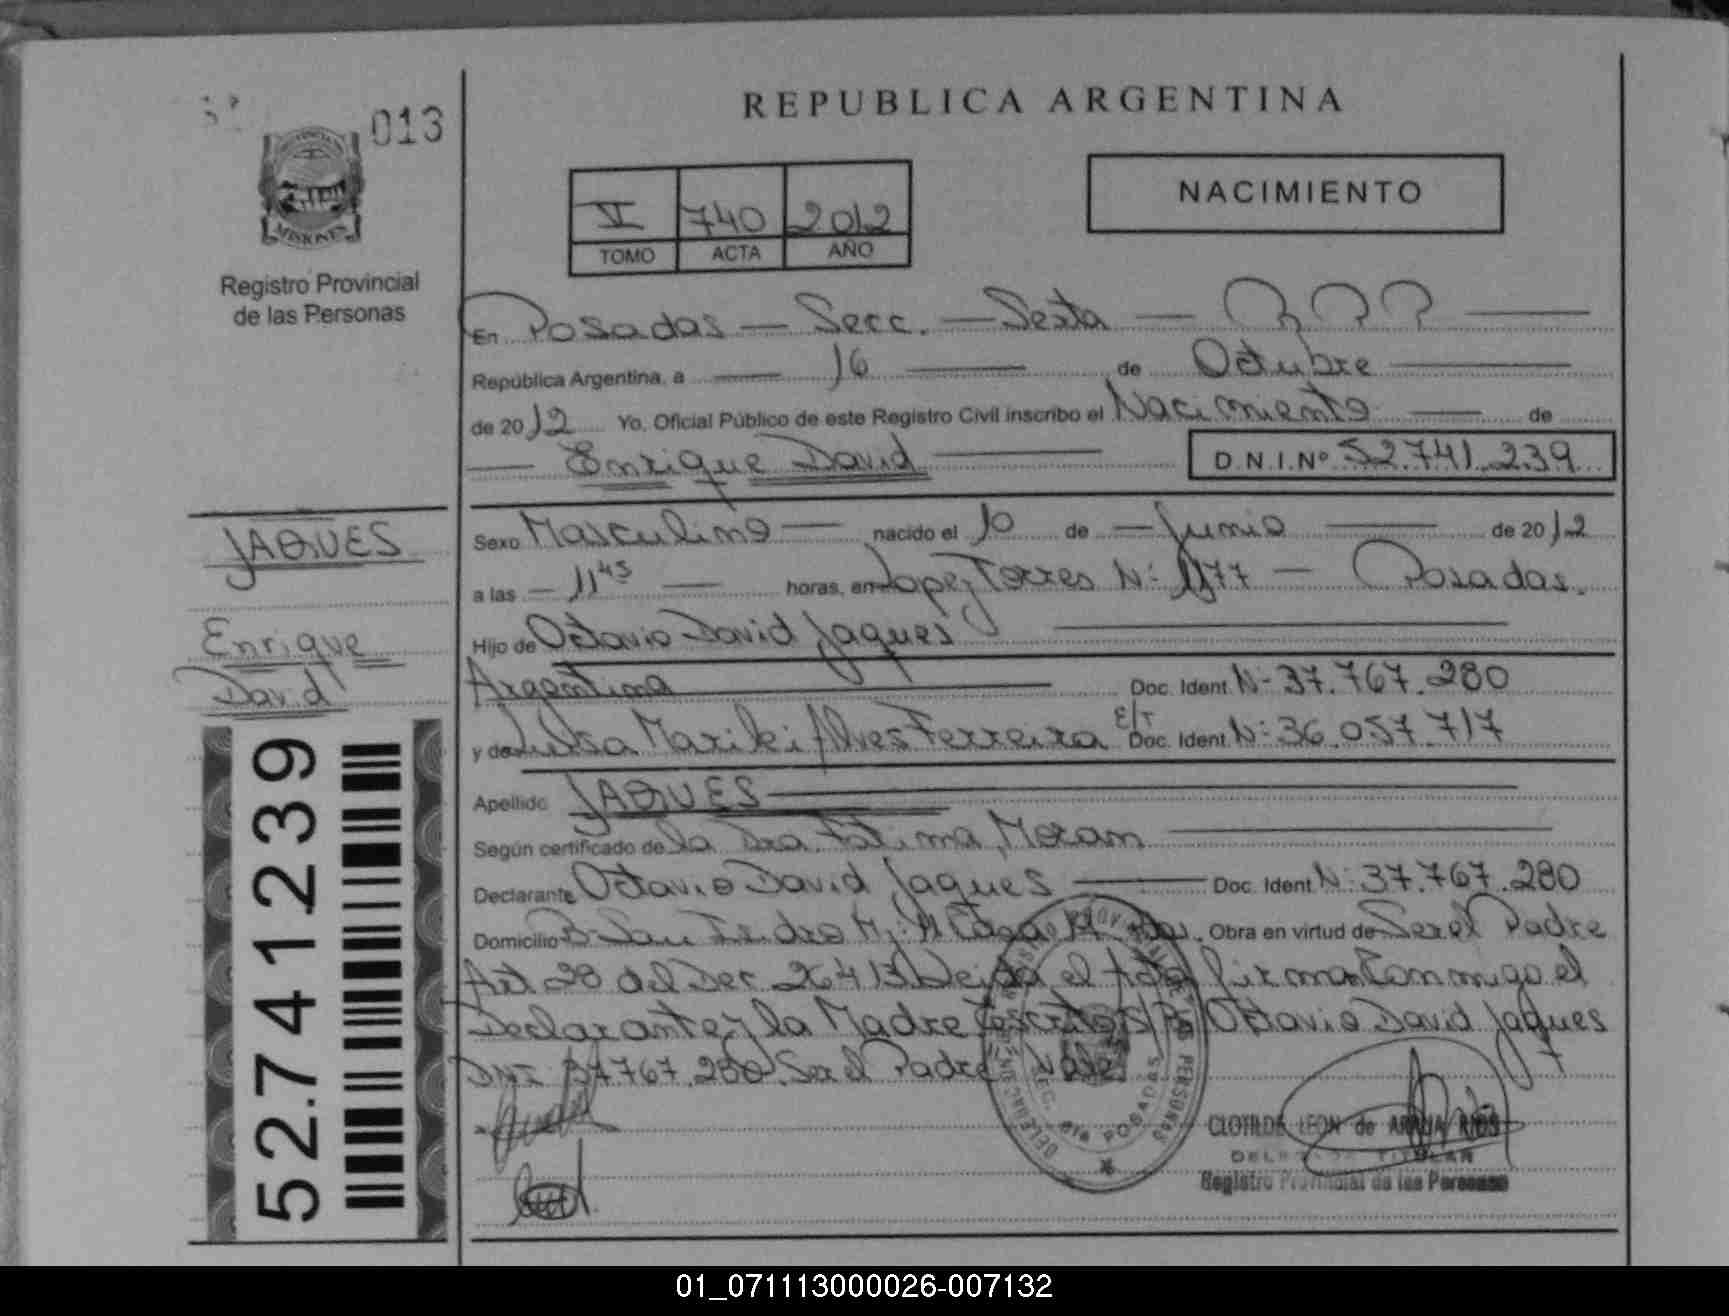 013
MISIONES
Registro Provincial
de las Personas
REPUBLICA ARGENTINA
VI 740 2012
TOMO ACTA AÑO
NACIMIENTO
En Posadas — Secc. — Sexta —
República Argentina, a — 16 — de Octubre —
de 2012 Yo, Oficial Público de este Registro Civil inscribo el Nacimiento — de
— Enrique David — D.N.I.Nº 52.741.239
JAQUES
Enrique
David
52.741.239
Sexo Masculino — nacido el 10 de — Junio — de 2012
a las — 11 45 — horas, en Lopez Torres Nº 1177 — Posadas.
Hijo de Octavio David Jaques —
Argentina — Doc. Ident. Nº 37.767.280
y de Alves Ferreira E/T Doc. Ident. Nº 36.057.717
Apellido JAQUES —
Según certificado de la Dra. Fatima Moran —
Declarante Octavio David Jaques — Doc. Ident. Nº 37.767.280
Domicilio Bº San Isidro Obra en virtud de Ser el Padre
Art 28 del Dec. Leida el Acta firman Conmigo el
Declarante y la Madre Octavio David Jaques
DNI 37.767.280 Ser el Padre Vale
SEC. 6ta POSADAS
CLOTILDE LEON de ARAUJA RIOS
DELEGADA TITULAR
Registro Provincial de las Personas
01_071113000026-007132